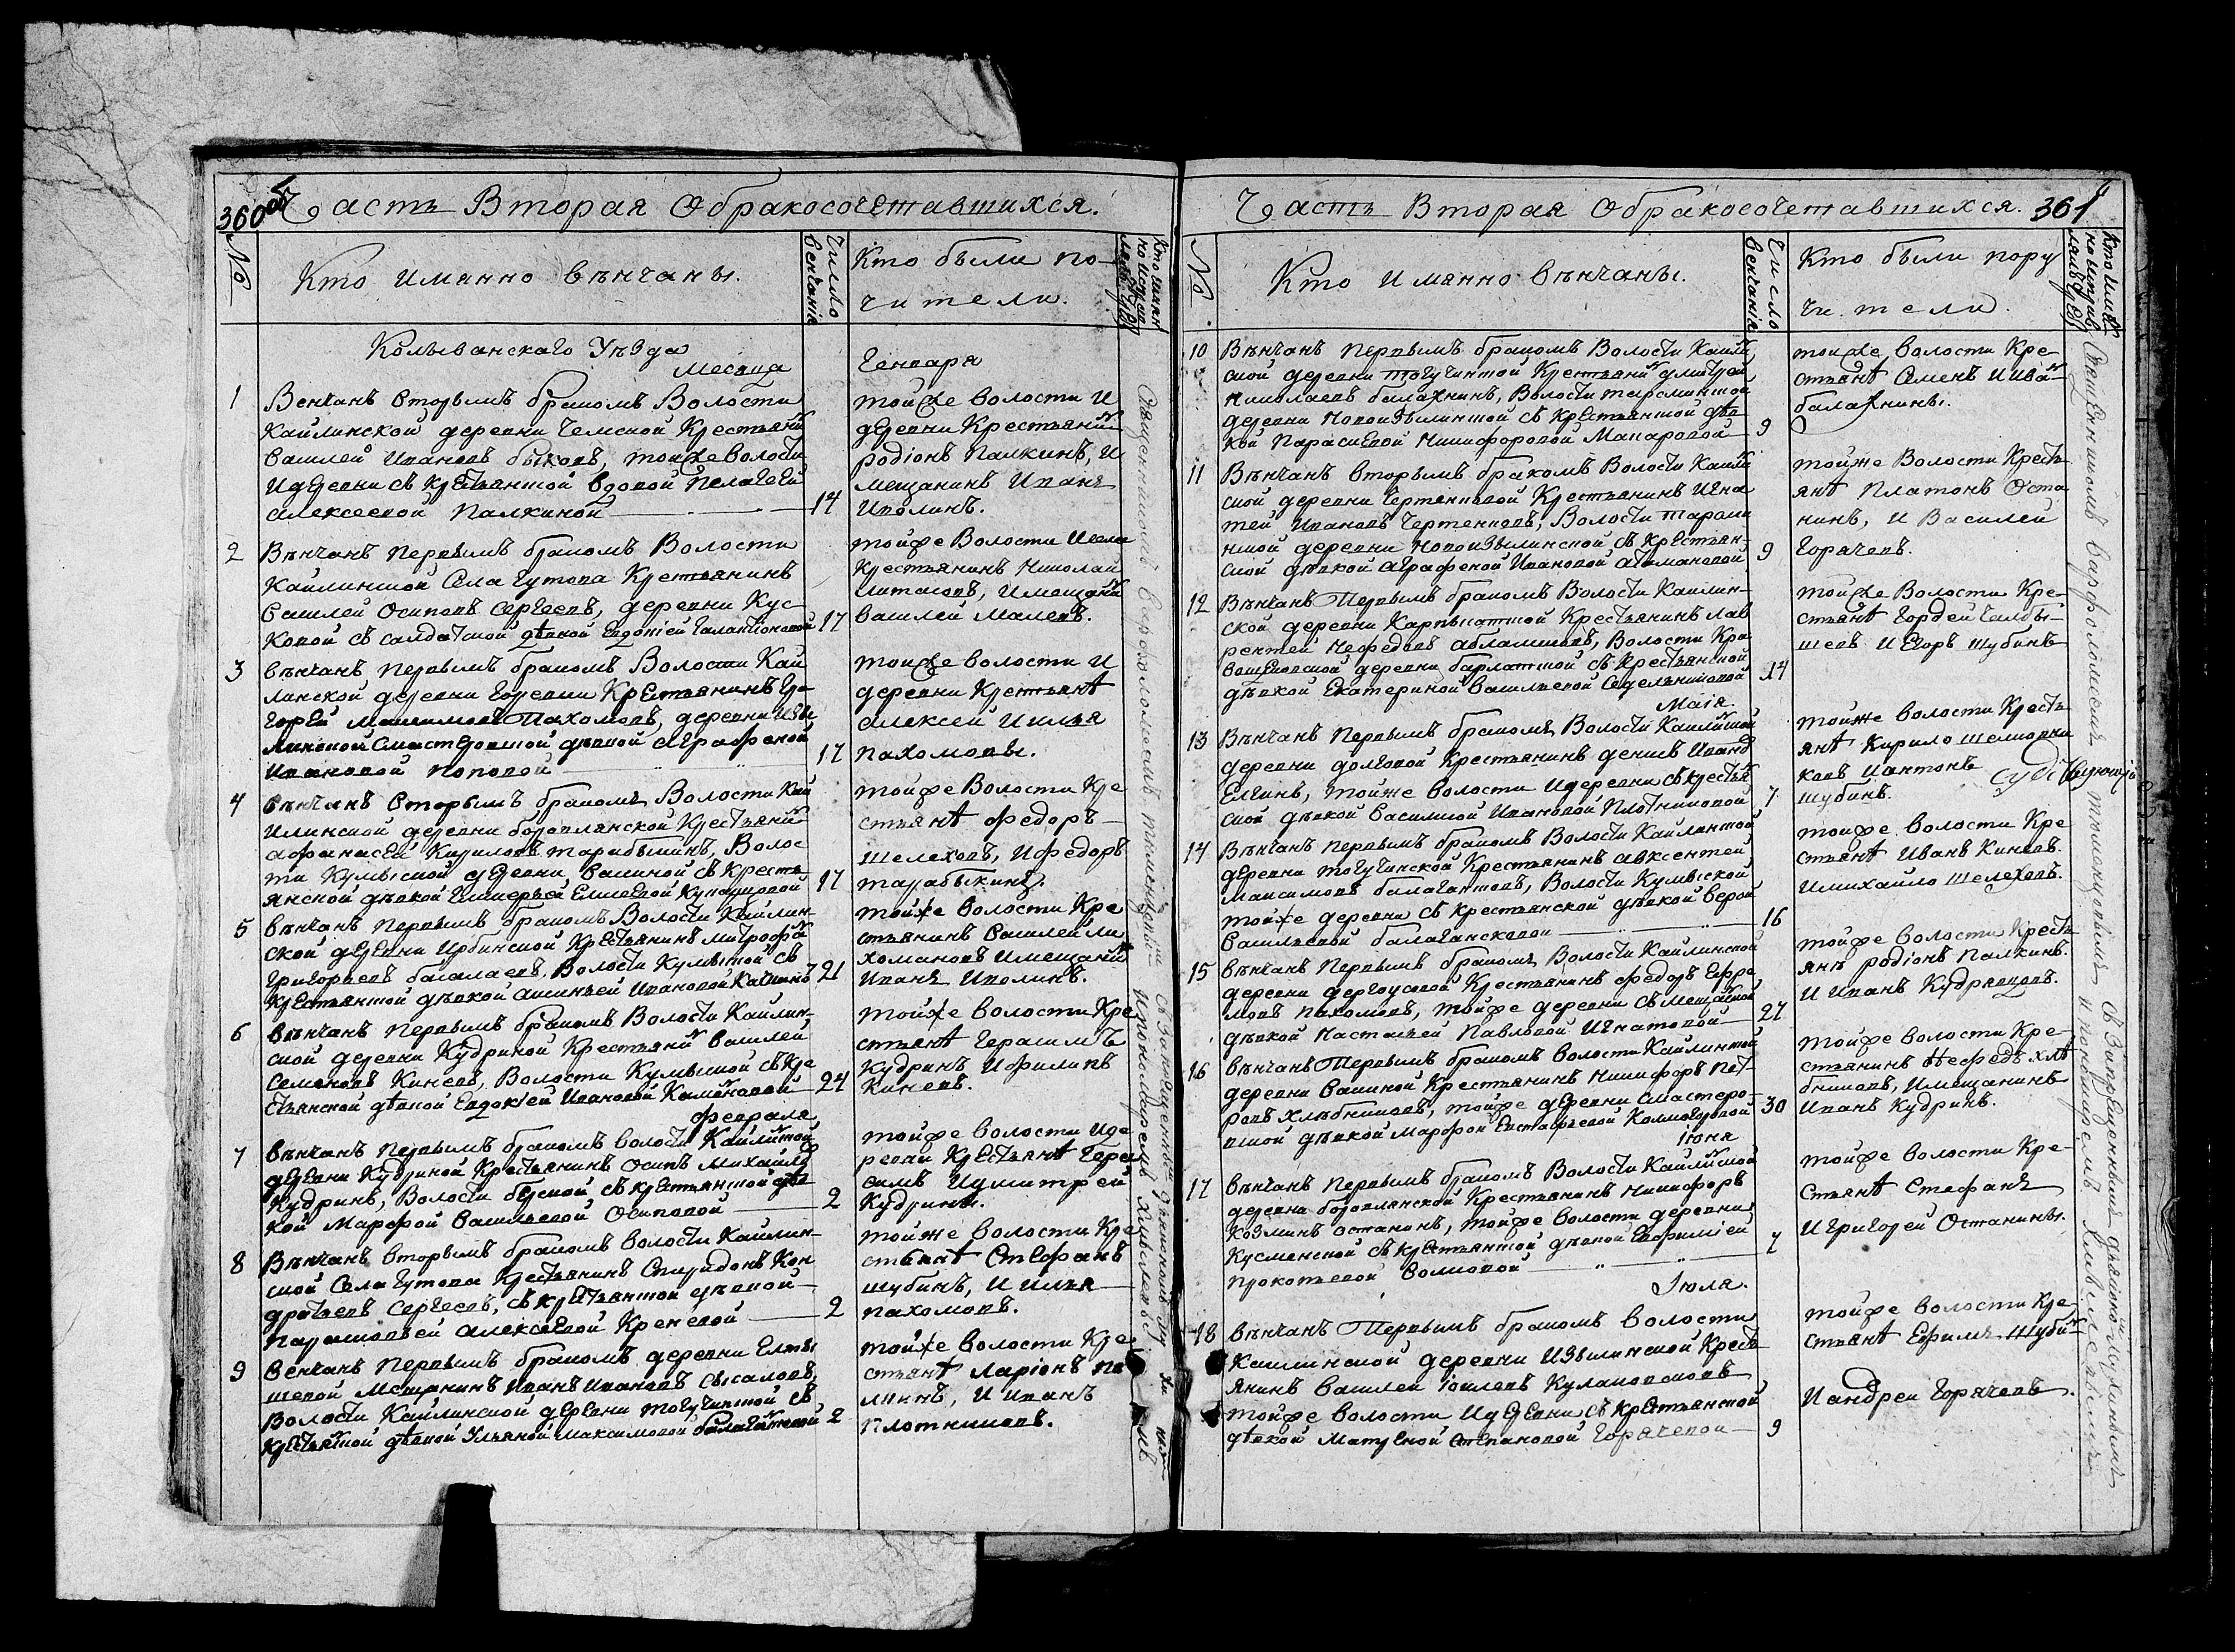 360об
Часть Вторая Обракосочетавшихся.
№
Кто имянно вѣнчаны.
Число венчанiя
Кто были по-
чители.
Колыванскаго Уѣзда
Месяца Генваря
1
Венчанъ вторымъ бракомъ Волости
Кайлинской деревни Чемской Крестьянинъ
Василей Ивановъ быковъ, тойже волости
и деревни съ крестьянской вдовой Пелагеей
Алексеевой Палкиной 14
тойже волости и
деревни Крестьянинъ
родiонъ Палкинъ, и
мещанинъ Иванъ
Иволинъ.
2
Вѣнчанъ первымъ бракомъ Волости
Кайлинской Села Гутова Крестьянинъ
Василей Осиповъ Сергеевъ, деревни Кус-
ковой съ салдатской дѣвкой Евдокiей Галактiоновой 17
тойже Волости и села
Крестьянинъ Николай
и мещанинъ
Василей Малевъ.
3
вѣнчанъ первымъ бракомъ Волости Кай
линской деревни Горевки Крестьянинъ Гри-
горей Максимовъ Пахомовъ, деревни Изы
линской с мастеровской дѣвкой Аграфеной
Ивановой Поповой 17
тойже волости и
деревни Крестьянѣ
Алексей и илья
Пахомовы.
4
вѣнчанъ вторымъ бракомъ Волости Кай
линской деревни боровлянской Крестьянинъ
Афанасей Кириловъ тарабыкинъ, Волос
ти Кумыской деревни вакиной съ Кресть-
янской дѣвкой Гликерьей Елисеевой Кунгурцовой 17
тойже Волости Кре
стьянѣ федоръ
Шелеховъ, и федоръ
тарабыкинъ.
5
вѣнчанъ первымъ бракомъ Волости Кайлин-
ской деревни Урбинской Крестьянинъ митрофанъ
Григорьевъ багалаевъ, Волости Кумыской съ
Крестьянской дѣвкой Аксиньей Ивановой 21
тойже волости Кре
стьянинъ Василей ли
хомановъ и мещанинъ
Иванъ Иволинъ.
6
Вѣнчанъ первымъ бракомъ Волости Кайлин-
ской деревни Кудриной Крестьянинъ Василей
Семеновъ Киневъ, Волости Кумыской съ Кре
стьянской дѣвкой Евдокiей Ивановой Каменской 24
тойже волости Кре
стьянѣ Герасимъ
Кудринъ и Филипъ
Киневъ.
февраля
7
вѣнчанъ первымъ бракомъ волости Кайлинской
деревни Кудриной Крестьянинъ Осипъ Михайловъ
Кудринъ, Волости бѣрской съ крестьянской дѣв
кой Марфой Васильевой Осиповой 2
тойже волости и де
ревни Крестьянѣ Гера
симъ и дмитрей
Кудрины.
8
Вѣнчанъ вторымъ бракомъ волости Кайлин-
ской Села Гутова Крестьянинъ Спиридонъ Кон
дратьевъ Сергеевъ, съ крестьянской дѣвкой
Парасковьей Алексеевой Креневой 2
тойже волости Кре
стьянѣ Стефанъ
шубинъ, и илья
Пахомовъ.
9
Венчанъ первымъ бракомъ деревни Елты
шевой мещанинъ Иванъ Ивановъ Сысаловъ,
Волости Кайлинской деревни Тогучинской съ
Крестьянской дѣвкой Ульяной максимовой балаганской 2
тойже волости Кре
стьянѣ ларiонъ Па
лкинъ, и Иванъ
Плотниковъ.
Часть Вторая Обракосочетавшихся. 361
№
Кто имянно вѣнчаны.
Число венчанiя
Кто были пору
чители.
10
Вѣнчанъ первымъ бракомъ Волости Кайлин
ской деревни Тогучинской Крестьянинъ дмитрей
Николаевъ балахнинъ, Волости тарсминской
деревни Новоизылинской съ крестьянской дѣв
кой Парасковей Никифоровой Макаровой 9
тойже волости Кре
стьянѣ Семенъ и Иванъ
балахнины.
11
Вѣнчанъ вторымъ бракомъ Волости Кайлин
ской деревни Чертенковой Крестьянинъ Игна
тей Ивановъ Чертенковъ, Волости тарсми
нской деревни Новоизылинской съ Крестьян-
ской дѣвкой Аграфеной Ивановой Атамановой 9
тойже Волости Кресть
янѣ Платонъ Оста
нинъ, и Василей
Горячевъ.
12
Вѣнчанъ Первымъ бракомъ Волости Кайлин-
ской деревни Карпысатской Крестьянинъ лав
рентей Нефедовъ аблакшовъ, Волости Кри
вощековской деревни барлатской съ Крестьянской
дѣвкой Екатериной Васильевой Седельниковой 14
тойже Волости Кре-
стьянѣ Гордей Чалбы-
шевъ и Егоръ шубинъ
Маiя.
13
Вѣнчанъ первымъ бракомъ Волости Кайлинской
деревни долговой Крестьянинъ денисъ Ивановъ
Елгинъ, тойже волости и деревни съ крестьян
ской дѣвкой Василисой Ивановой Плотниковой 7
тойже волости Кресть
янѣ Кирило шемовни
ковъ и антонъ
шубинъ.
14
Вѣнчанъ первымъ бракомъ Волости Кайлинской
деревни тогучинской Крестьянинъ авксентей
Максимовъ балаганской, Волости Кумыской
тойже деревни съ крестьянской дѣвкой верой
Васильевой балаганской 16
тойже волости Кре
стьянѣ Иванъ Киневъ.
и михайло Шелеховъ.
15
вѣнчанъ Первымъ бракомъ Волости Кайлинской
деревни дергоусовой Крестьянинъ федоръ Ефре
мовъ Пахомовъ, тойже деревни съ мещанской
дѣвкой Настасьей Павловой Игнатовой 27
тойже волости Кресть
янѣ родiонъ Палкинъ.
И Иванъ Кудрявцовъ.
16
вѣнчанъ Первымъ бракомъ волости Кайлинской
деревни Вакиной Крестьянинъ Никифоръ Пет-
ровъ хлѣбниковъ, тойже деревни с мастеро-
вской дѣвкой Марфой Евстафьевой Колмогоровой 30
тойже волости Кре-
стьянинъ Нефедъ хлѣ
бниковъ, и мещанинъ
Иванъ Кудринъ.
iюня
17
вѣнчанъ первымъ бракомъ Волости Кайлинской
деревни боровлянской Крестьянинъ Никифоръ
Козминъ останинъ, тойже волости деревни
Кусменской съ крестьянской дѣвкой Евфимiей
Прокопьевой Волковой 7
тойже волости Кре-
стьянѣ Стефанъ
и григорей Останины.
Iюля.
18
вѣнчанъ Первымъ бракомъ волости
Кайлинской деревни Изылинской Кресть
янинъ Василей Iовлевъ Кулаковской
тойже волости и деревни съ крестьянской
дѣвкой Матреной Степановой Горячевой 9
тойже волости Кре
стьянѣ Ефимъ Шубинъ
И андрей Горячевъ.